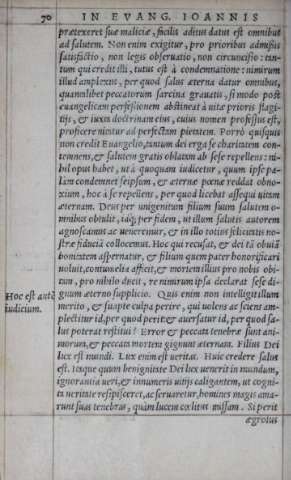 70 IN EVANG. IOANNIS
prætexeret suæ maliciæ, facilis aditus datus est omnibus
ad salutem. Non enim exigitur, pro prioribus admissis
satisfactio, non legis obseruatio, non circuncisio: tan-
tum qui credit illi, tutus est à condemnatione: nimirum
illud amplexus, per quod salus æterna datur omnibus,
quantislibet peccatorum sarcina grauatis, si modo post
euangelicam professionem abstineat à uitæ prioris flagi-
tijs, & iuxta doctrinam eius, cuius nomen professus est,
proficere nitatur ad perfectam pietatem. Porrò quisquis
non credit Euangelio, tantum dei erga se charitatem con-
temnens, & salutem gratis oblatam ab sese repellens: ni-
hil opus habet, ut à quoquam iudicetur, quum ipse pa-
làm condemnet seipsum, & æternæ pœnæ reddat obno-
xium, hoc à se repellens, per quod licebat assequi uitam
æternam. Deus per unigenitum filium suum salutem o-
mnibus obtulit, idq; per fidem, ut illum salutis autorem
agnoscamus ac ueneremur, & in illo totius felicitatis no-
stræ fiduciā collocemus. Hoc qui recusat, & dei tā obuiā
bonitatem aspernatur, & filium quem pater honorificari
uoluit, contumelia afficit, & mortem illius pro nobis obi-
tam, pro nihilo ducit, re nimirum ipsa declarat sese di-
gnum æterno supplicio. Quis enim non intelligit illum
Hoc est autē
iudicium.
meritò, & suapte culpa perire, qui uolens ac sciens am-
plectitur id, per quod perit: & auersatur id, per quod sa-
lus poterat restitui? Error & peccata tenebræ sunt ani-
morum, & peccata mortem gignunt æternam. Filius Dei
lux est mundi. Lux enim est ueritas. Huic credere salus
est. Itaque quum benignitate Dei lux uenerit in mundum,
ignorantia ueri, & innumeris uitijs caligantem, ut cogni-
ta ueritate resipisceret, ac seruaretur, homines magis ama-
runt suas tenebras, quàm lucem cœlitus missam. Si perit
ægrotus